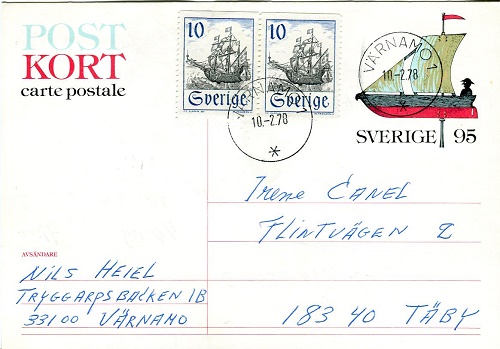 POST
KORT
carte postale
10 10
Sverige Sverige
VÄRNAMO 1
10.-2.78
VÄRNAMO 1
10.-2.78
SVERIGE 95
Irene Canel
Flintvägen 2
183 40 TÄBY
AVSÄNDARE
Nils Heiel
Tryggarpsbacken 1B
33100 Värnamo